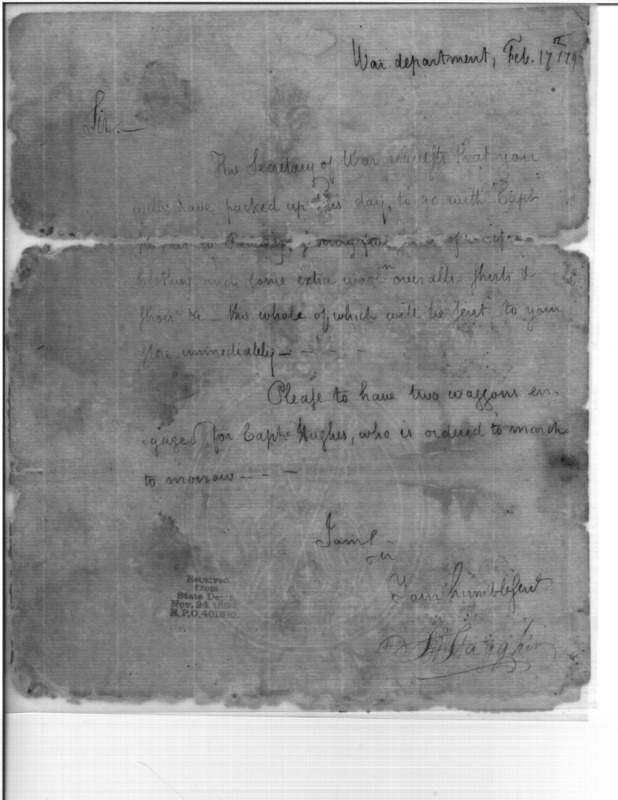 War department, Feb. 17th 179
Sir.—
The Secretary of War requests that you
will have packed up this day, to go with Capt
clothing and some extra wooln overalls shirts &
shoes &c — the whole of which will be sent to your
store immediately — - - -
Please to have two waggons en-
-gaged for Capt. Hughes, who is ordered to march
to morrow - - -
I am Sir
Your humble Servt
Received
from
State Dept.
Nov. 24, 189
R.P.O. 401